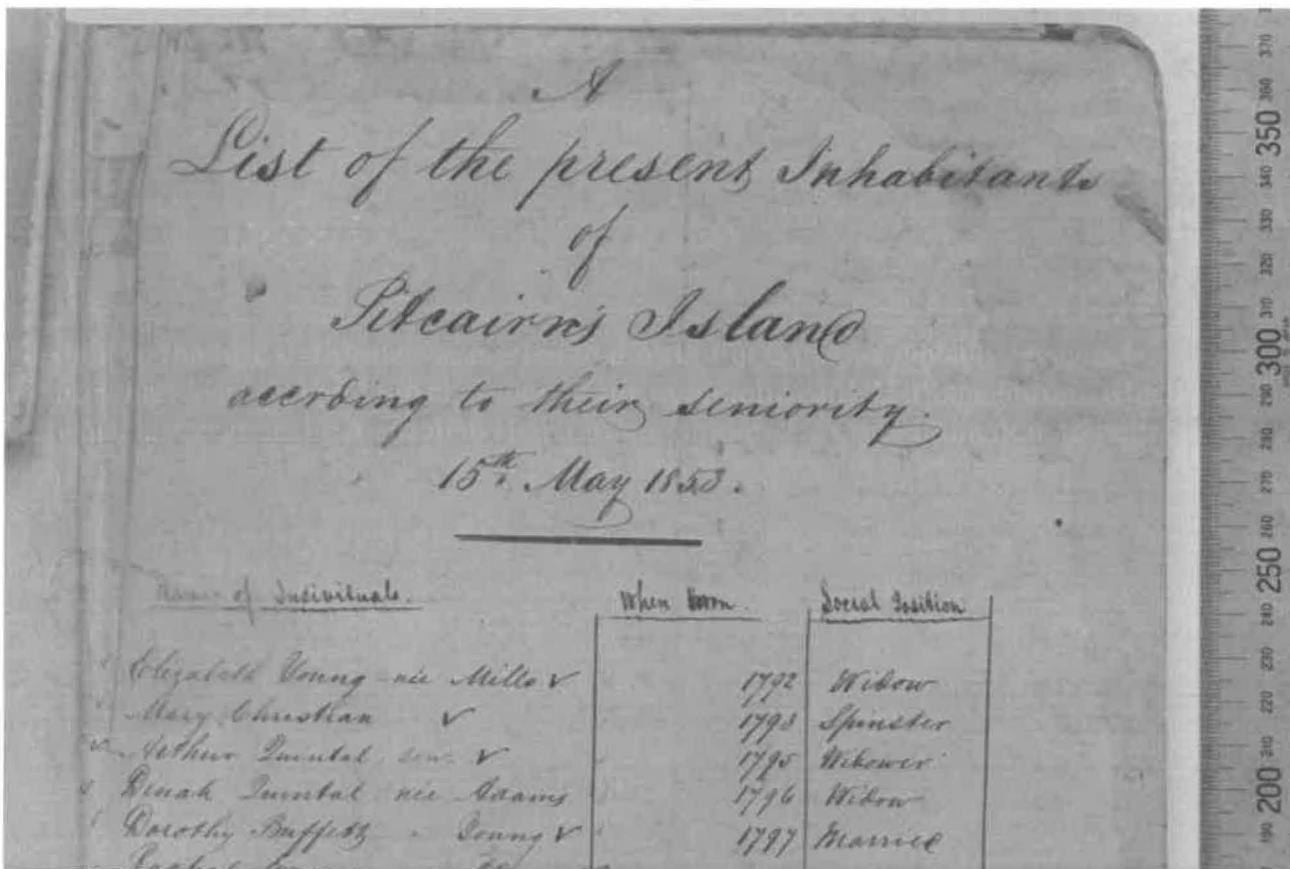 A
List of the present Inhabitants
of
Pitcairn's Island
according to their seniority.
15th May 1853.
Names of Individuals. When born. Social Position
Elizabeth Young née Mills v 1792 Widow
Mary Christian v 1793 Spinster
Arthur Quintal sen. v 1795 Widower
Dinah Quintal née Adams 1796 Widow
Dorothy Buffett " Young v 1797 Married
370
360
350
340
330
320
310
300
290
280
270
260
250
240
230
220
210
200
190